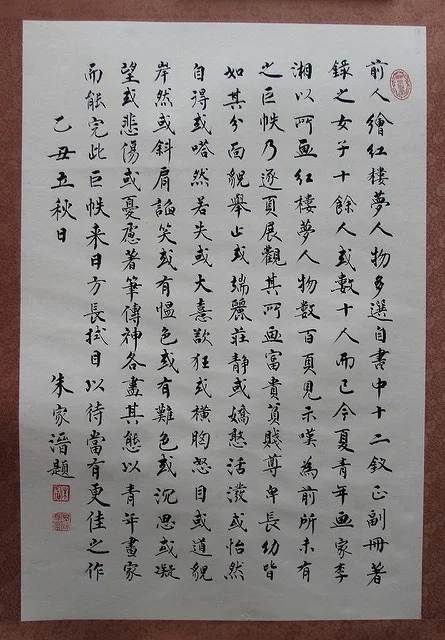 前人繪紅樓夢人物多選自書中十二釵正副冊著
錄之女子十餘人或數十人而已今夏青年画家李
湘以所画紅樓夢人物數百頁見示嘆為前所未有
之巨帙乃逐頁展觀其所画富貴貧賤尊卑長幼皆
如其分面貌舉止或端麗莊靜或嬌憨活潑或怡然
自得或嗒然若失或大憙歡狂或橫胸怒目或道貌
岸然或斜肩諂笑或有慍色或有難色或沉思或凝
望或悲傷或憂慮著筆傳神各盡其態以青年畫家
而能完此巨帙来日方長拭目以待當有更佳之作
乙丑五秋日
朱家溍題